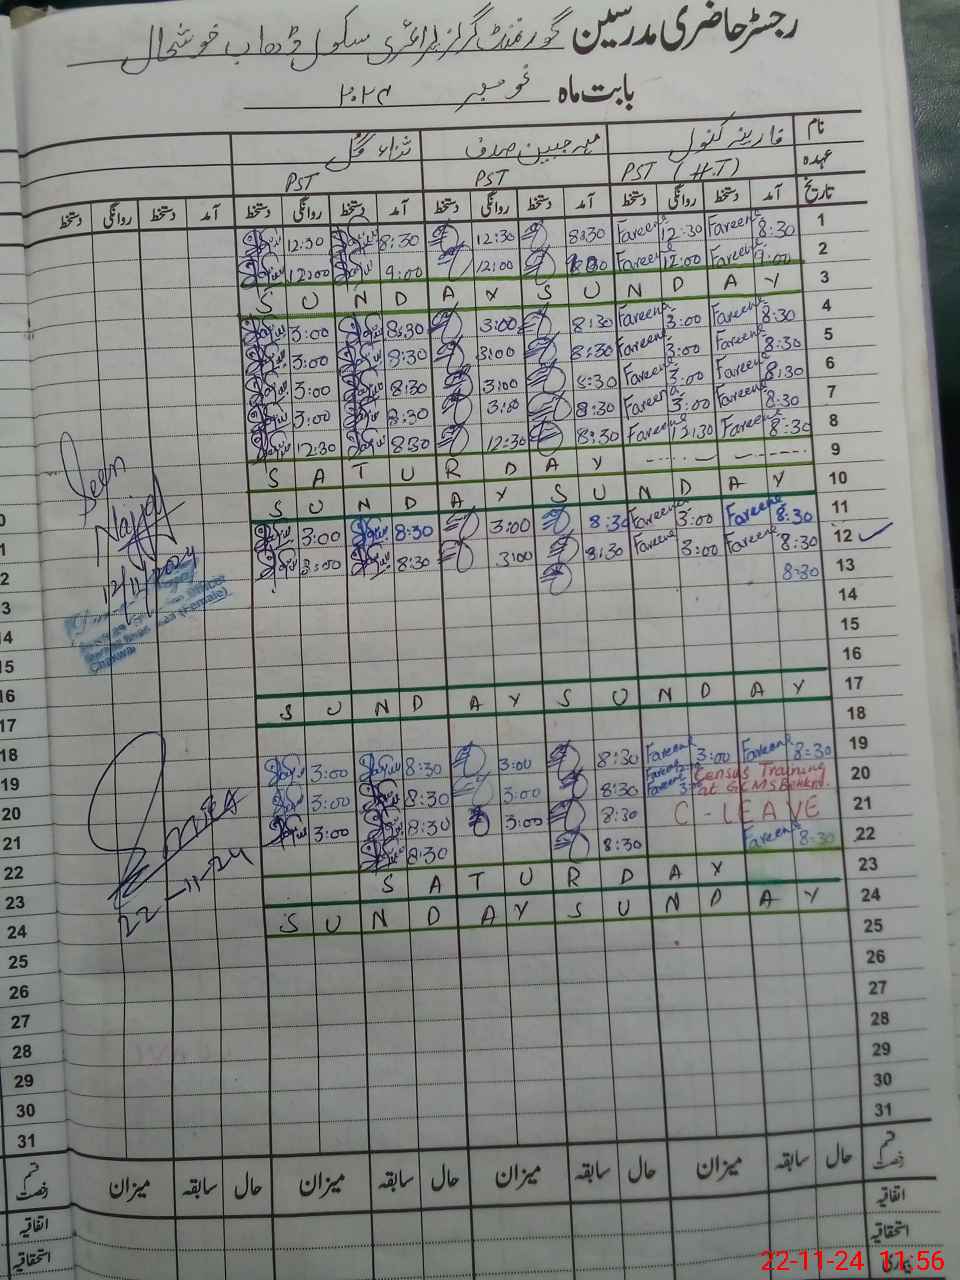 رجسٹر حاضری مدرسین گورنمنٹ گرلز پرائمری سکول ڈھاب خوشحال
بابت ماہ نومبر ۲۰۲۴
نام فارینہ کنول مہ جبین صدف ثناء گل
عہدہ PST (H.T) PST PST
تاریخ آمد دستخط روانگی دستخط آمد دستخط روانگی دستخط آمد دستخط روانگی دستخط آمد دستخط روانگی دستخط
1 8:30 Fareene 12:30 Fareene 8:30 12:30 8:30 12:30
2 9:00 Fareene 12:00 Fareene 12:00 9:00 12:00
3 S U N D A Y S U N D A Y
4 8:30 Fareene 3:00 Fareene 8:30 3:00 8:30 3:00
5 8:30 Fareene 3:00 Fareene 8:30 3:00 8:30 3:00
6 8:30 Fareene 3:00 Fareene 8:30 3:00 8:30 3:00
7 8:30 Fareene 3:00 Fareene 8:30 3:00 8:30 3:00
8 8:30 Fareene 12:30 Fareene 8:30 12:30 8:30 12:30
9 S A T U R D A Y
10 S U N D A Y S U N D A Y
11 8:30 Fareene 3:00 Fareene 8:30 3:00 8:30 3:00
12 8:30 Fareene 3:00 Fareene 8:30 3:00 8:30 3:00
13 8:30
14
15
16
17 S U N D A Y S U N D A Y
18
19 8:30 Fareene 3:00 Fareene 8:30 3:00 8:30 3:00
20 Census Training at 8:30 3:00 8:30 3:00
21 C-LEAVE 8:30 3:00 8:30 3:00
22 8:30 Fareene 8:30 8:30
23 S A T U R D A Y
24 S U N D A Y S U N D A Y
25
26
27
28
29
30
31
Seen
12/11/2024
(Female)
Chakwal
22-11-24
قسم رخصت حال سابقہ میزان حال سابقہ میزان حال سابقہ میزان حال سابقہ میزان
اتفاقیہ
استحقاقیہ
بیماری
22-11-24 11:56